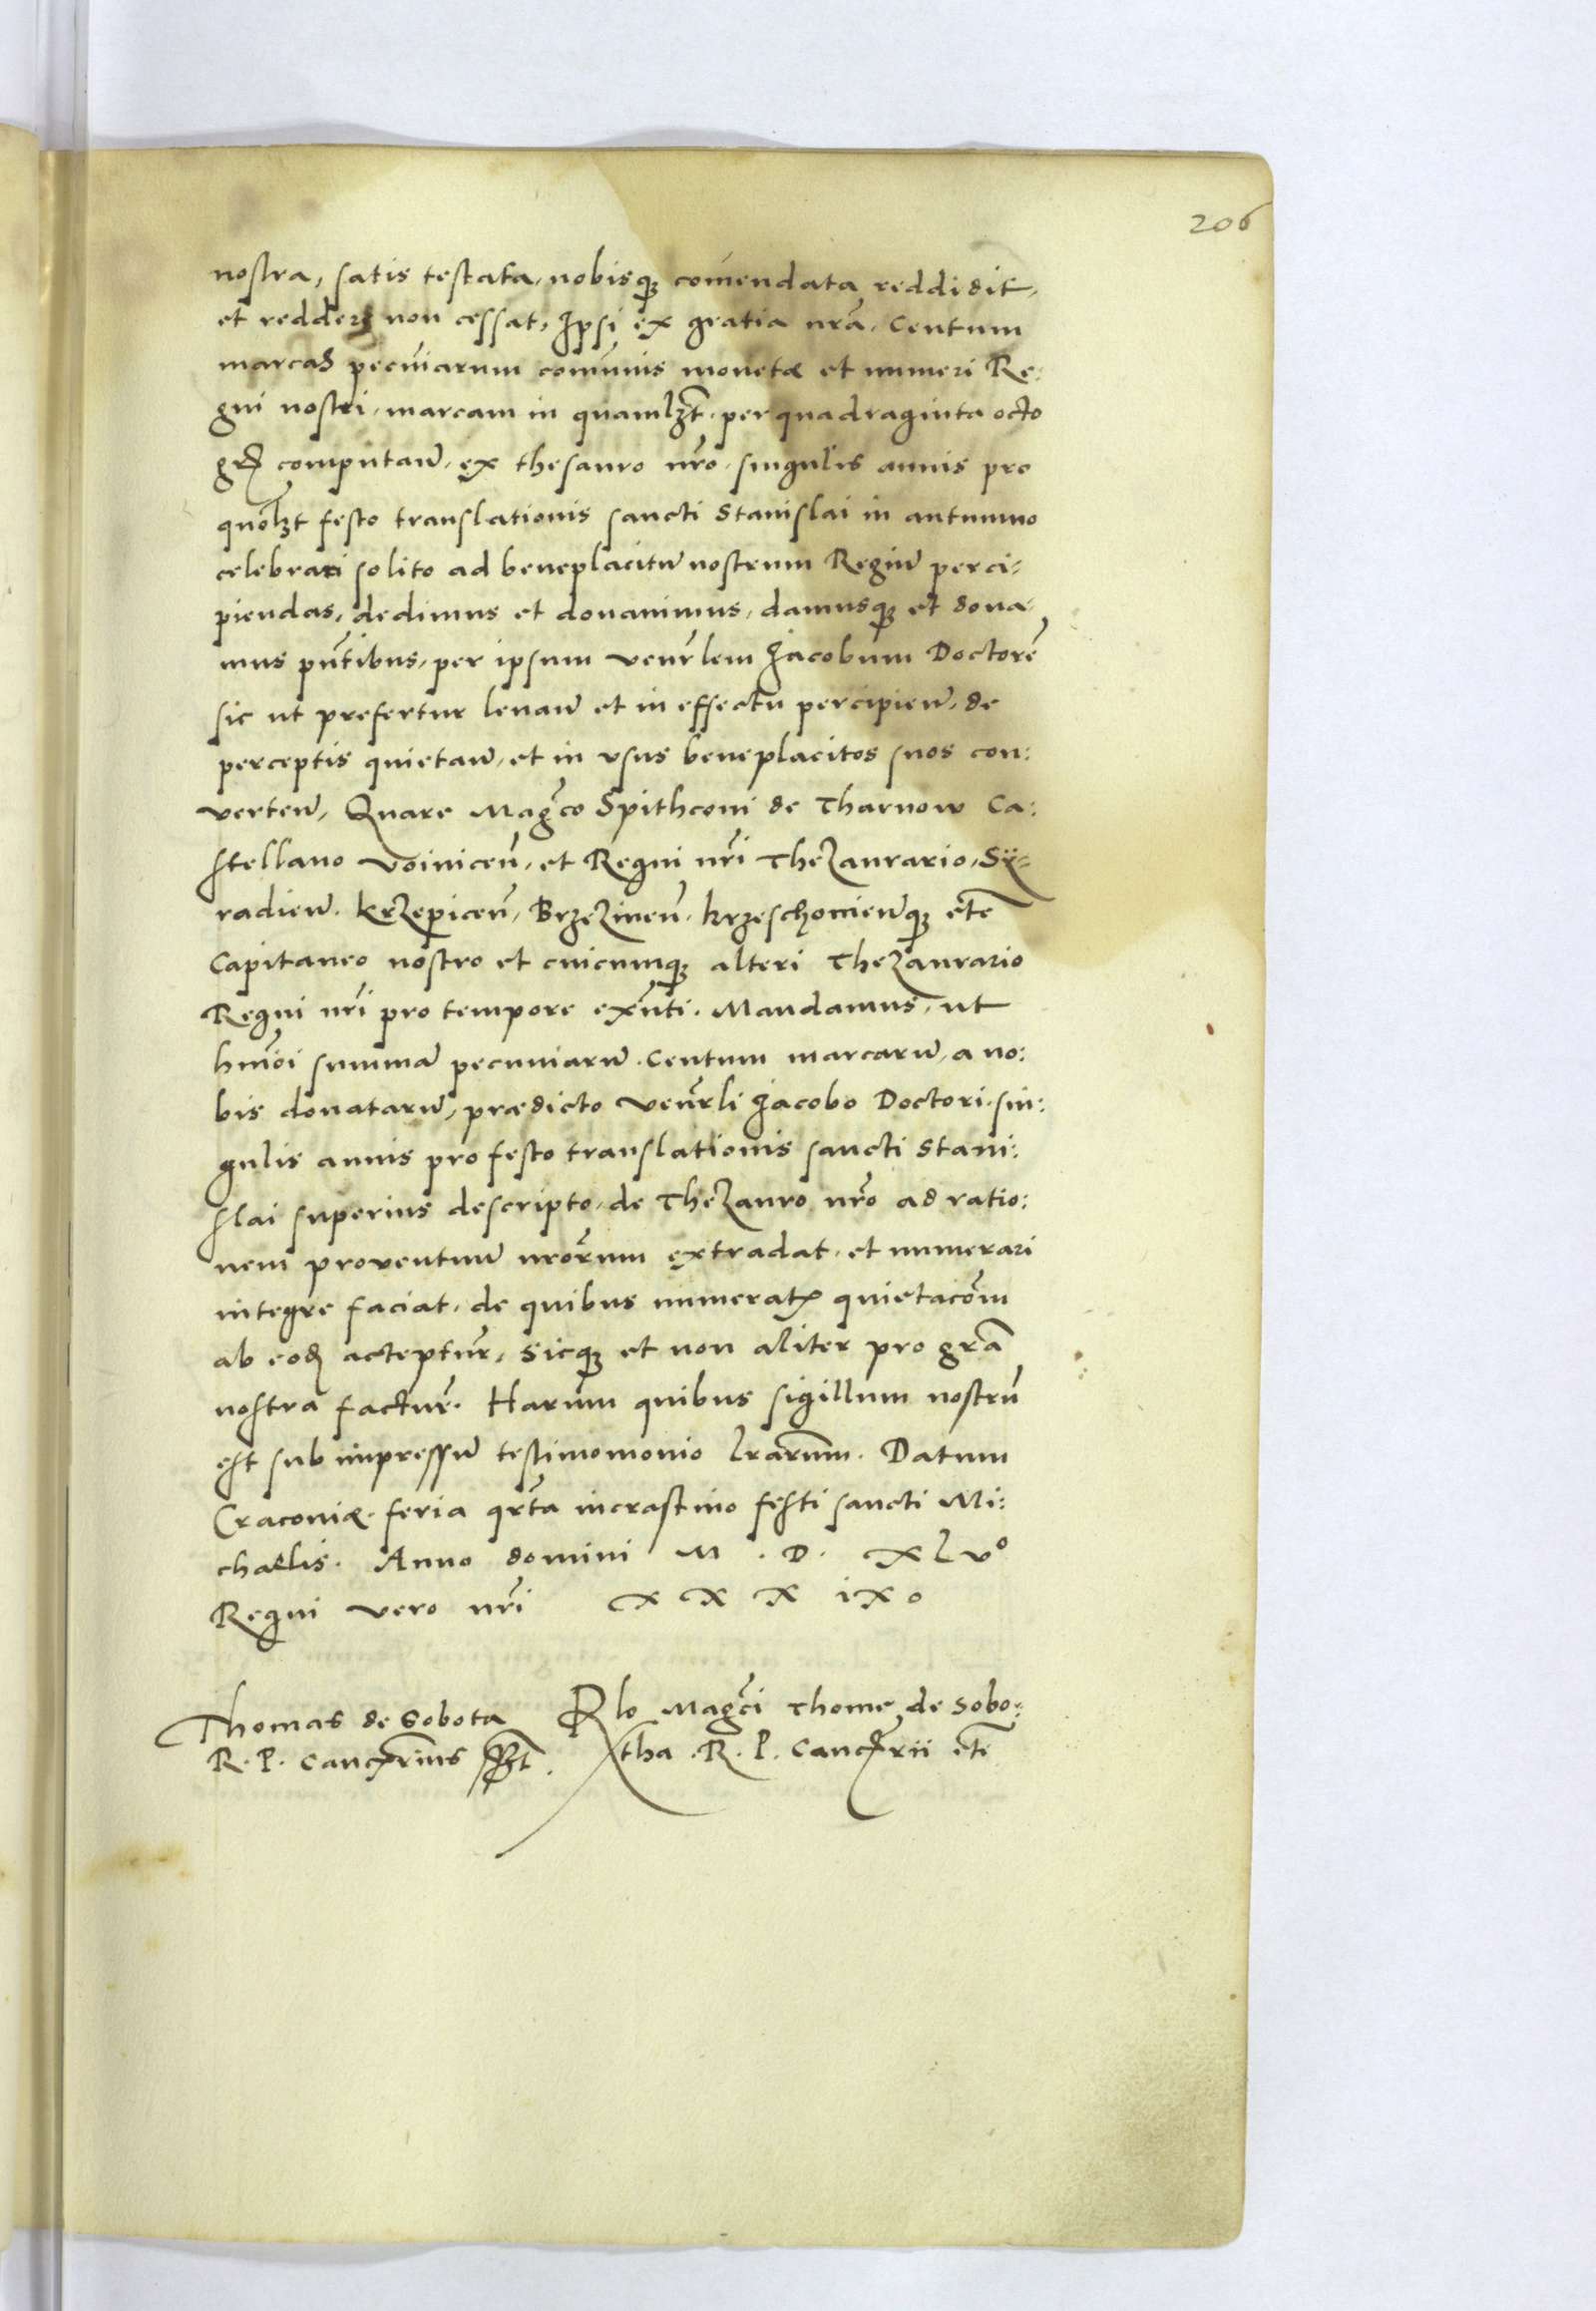 206
nostra, satis testata, nobisq₃ com̄endata reddidit,
et reddere non cessat, Ipsi ex gratia nr̄a, Centum
marcas pecun̄iarum com̄unis monetæ et numeri Re:
gni nostri, marcam in quamlꝫt, per quadraginta octo
gr̄ computan̄, ex thesauro nr̄o, singulis annis pro
quol̄ꝫt festo translationis sancti Stanislai in autumno
celebrari solito ad beneplacitū nostrum Regiū perci:
piendas, dedimus et donauimus, damusq₃ et dona:
mus pn̄tibus, per ipsum venr̄lem Jacobum Doctorē
sic ut prefertur leuan̄ et in effectu percipien̄, de
perceptis quietan̄, et in vsus beneplacitos suos con:
verten̄, Quare Mag̅co Spithconi de Tharnow Ca:
stellano Voinicen̄, et Regni nr̄i Thezaurario, Sÿ:
radien̄. Krzepicen̄, Brzezinen̄. Krzeschouien̄q₃ etc̄
Capitaneo nostro et cuicumq₃ alteri Thezaurario
Regni nr̄i pro tempore exn̄ti. Mandamus, ut
hmōi summā pecuniarū. Centum marcarū, a no:
bis donatarū, prædicto Venr̄li Jacobo Doctori. sin:
gulis annis pro festo translationis sancti Stani:
slai superius descripto, de Thezauro nr̄o ad ratio:
nem prouentuū nr̄orum extradat, et numerari
integre faciat, de quibus numeratꝭ quietacōm
ab eod̄ acceptur̄, sicq₃ et non aliter pro gr̄a
nostra factur̄. Harum quibus sigillum nostrū
est sub impressū testimomonio l̄rarum. Datum
Cracoviæ. feria qr̄ta incrastino festi sancti Mi:
chaelis. Anno domini M . D . XLVº
Regni vero nr̄i XXX ixo
Thomas de Sobota
R. P. Canc̄rius sst.
Rlo Mag̅ci Thome de Sobo:
tha . R. P. Canc̄rii etc̄